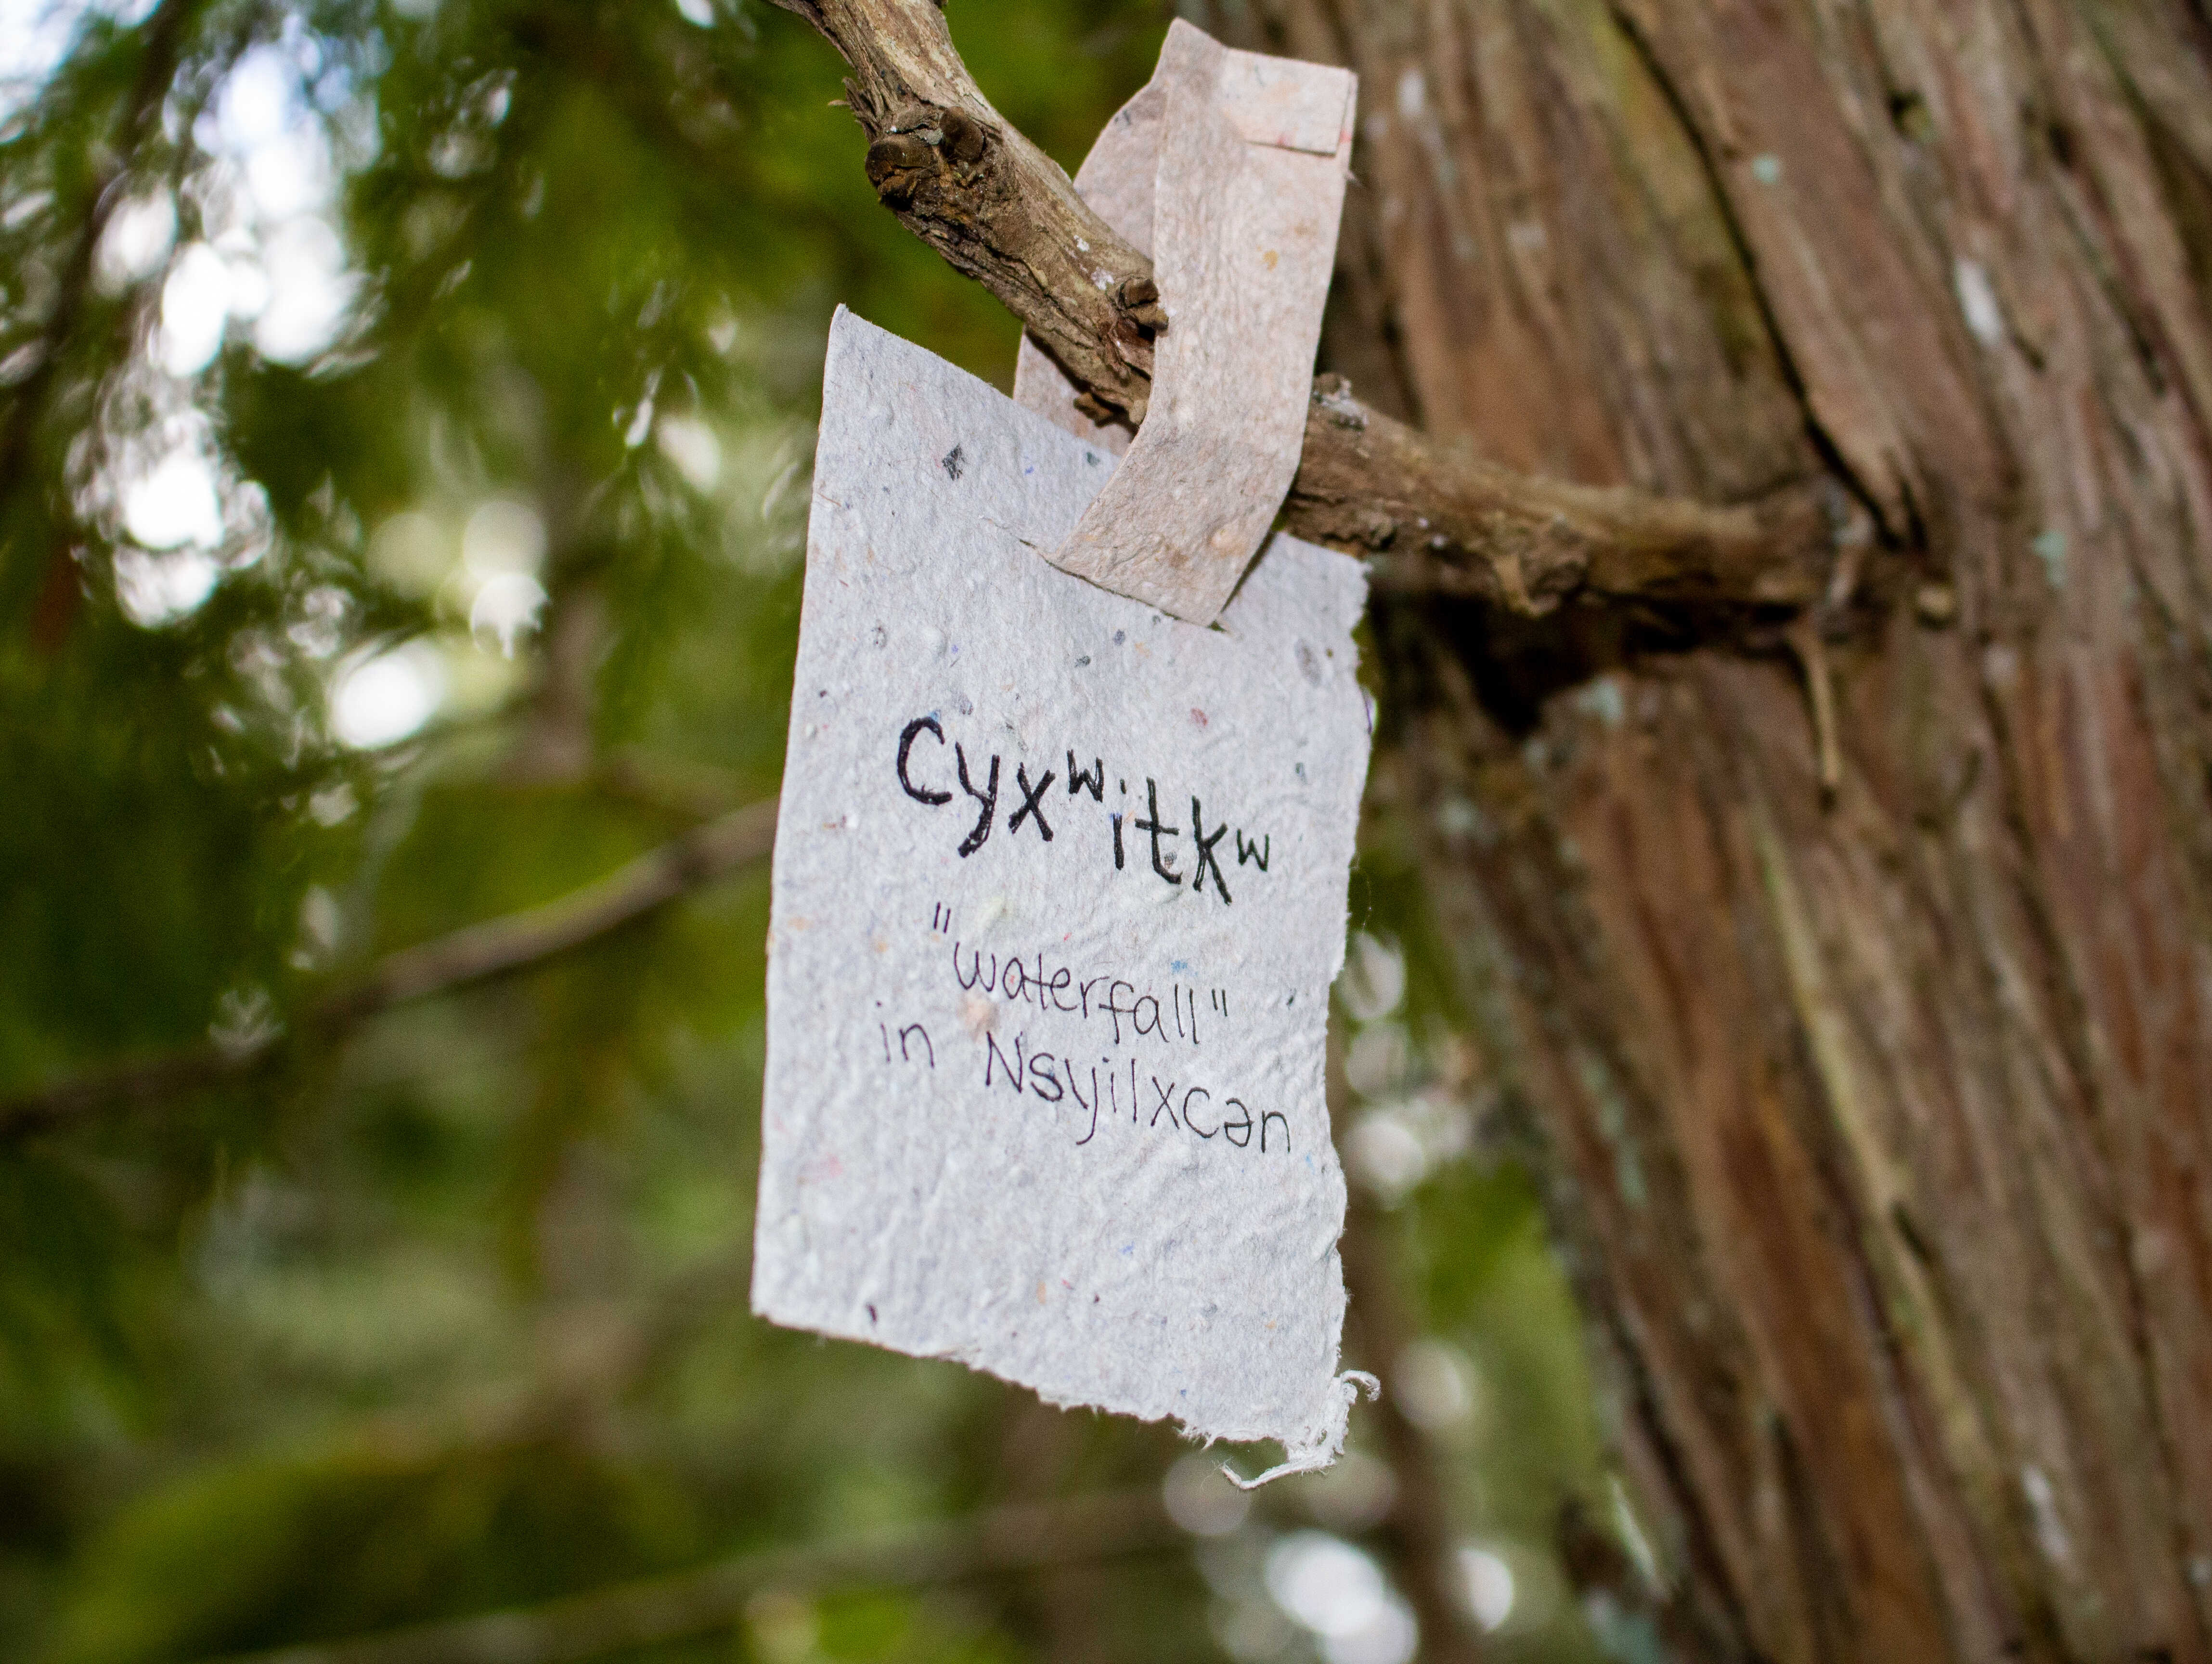 Cyxʷitkʷ
"waterfall"
in Nsyilxcən